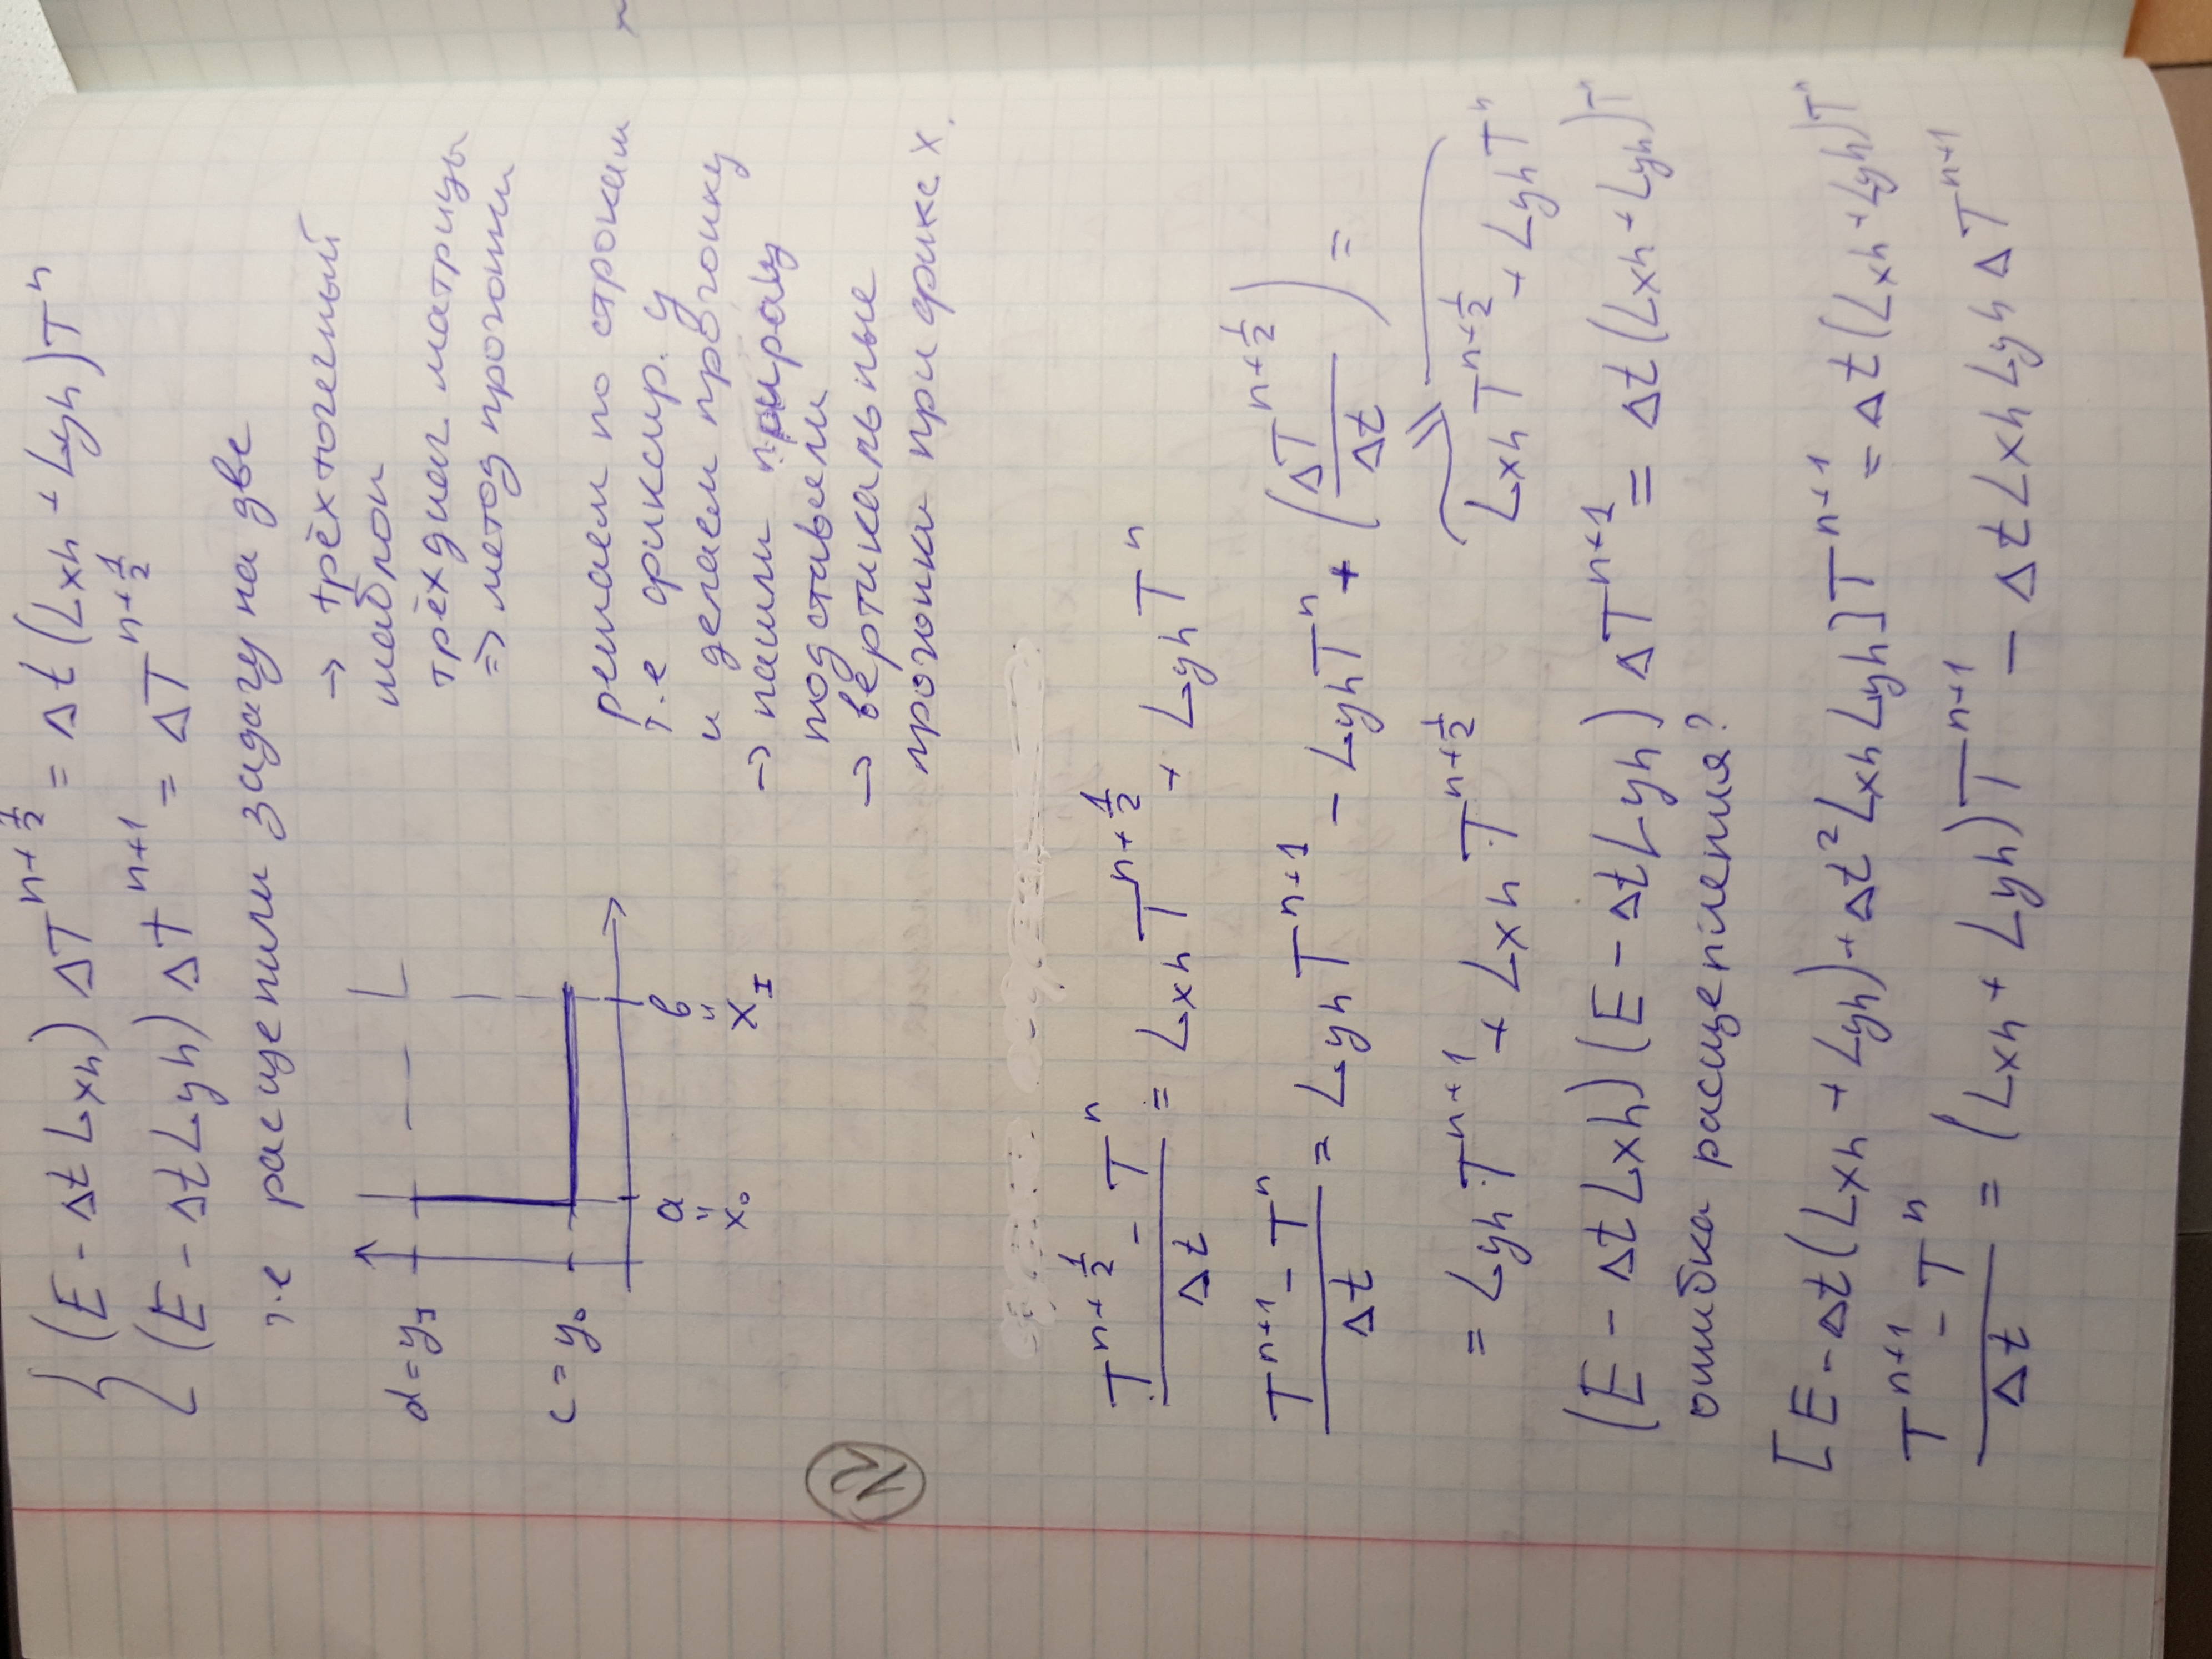 (E - Δt Lxh) ΔT^{n+1/2} = Δt (Lxh + Lyh) T^n
(E - Δt Lyh) ΔT^{n+1} = ΔT^{n+1/2}
т.е расщепили задачу на две
→ трёхточечный
шаблон
трёхдиаг. матрицы
⇒ метод прогонки
d = y_J
c = y_0
a
"
x_0
в
"
x_I
решаем по строкам
т.е фиксир. y
и делаем прогонку
→ нашли
подставили
→ вертикальные
прогонки при фикс x.
12
(T^{n+1/2} - T^n)/Δt = Lxh T^{n+1/2} + Lyh T^n
(T^{n+1} - T^n)/Δt = Lyh T^{n+1} - Lyh T^n + (ΔT^{n+1/2}/Δt) =
= Lyh T^{n+1} + Lxh T^{n+1/2}
Lxh T^{n+1/2} + Lyh T^n
(E - Δt Lxh)(E - Δt Lyh) ΔT^{n+1} = Δt (Lxh + Lyh) T^n
ошибка расщепления?
[E - Δt(Lxh + Lyh) + Δt² Lxh Lyh] T^{n+1} = Δt (Lxh + Lyh) T^n
(T^{n+1} - T^n)/Δt = (Lxh + Lyh) T^{n+1} - Δt Lxh Lyh ΔT^{n+1}